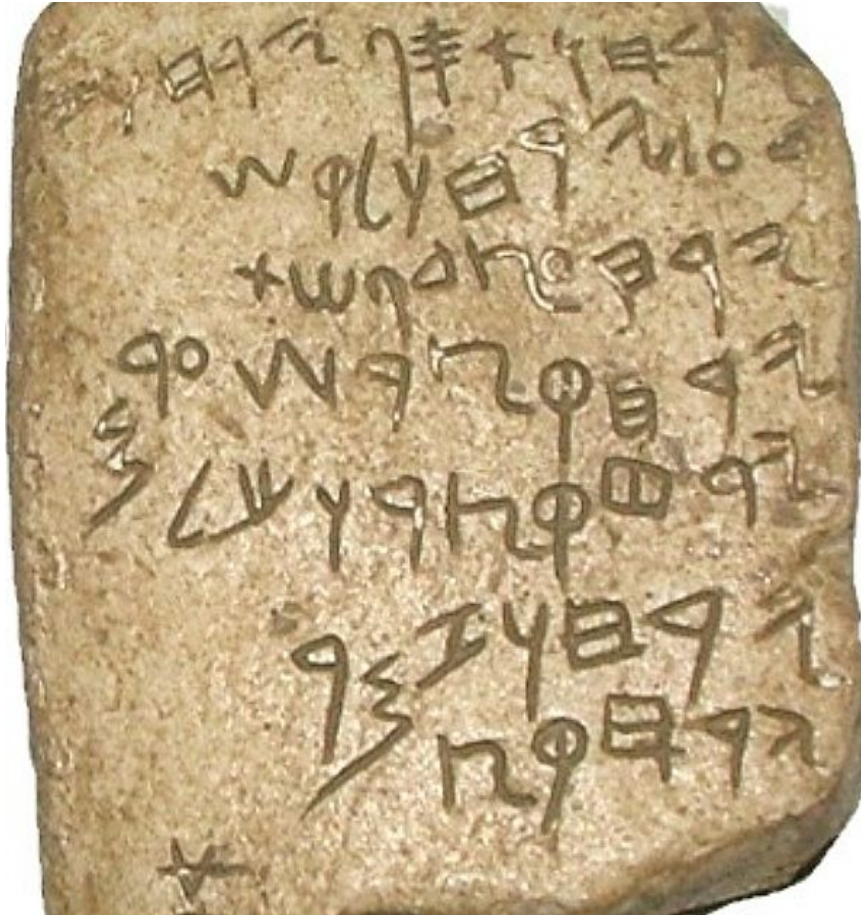 𐤉𐤓𐤇𐤅𐤀𐤎𐤐𐤉𐤓𐤇𐤅𐤆
𐤓𐤏𐤉𐤓𐤇𐤅𐤋𐤒𐤔
𐤉𐤓𐤇𐤏𐤑𐤃𐤐𐤔𐤕
𐤉𐤓𐤇𐤒𐤑𐤓𐤔𐤏𐤓𐤌
𐤉𐤓𐤇𐤒𐤑𐤓𐤅𐤊𐤋
𐤉𐤓𐤇𐤅𐤆𐤌𐤓
𐤉𐤓𐤇𐤒𐤑
𐤀